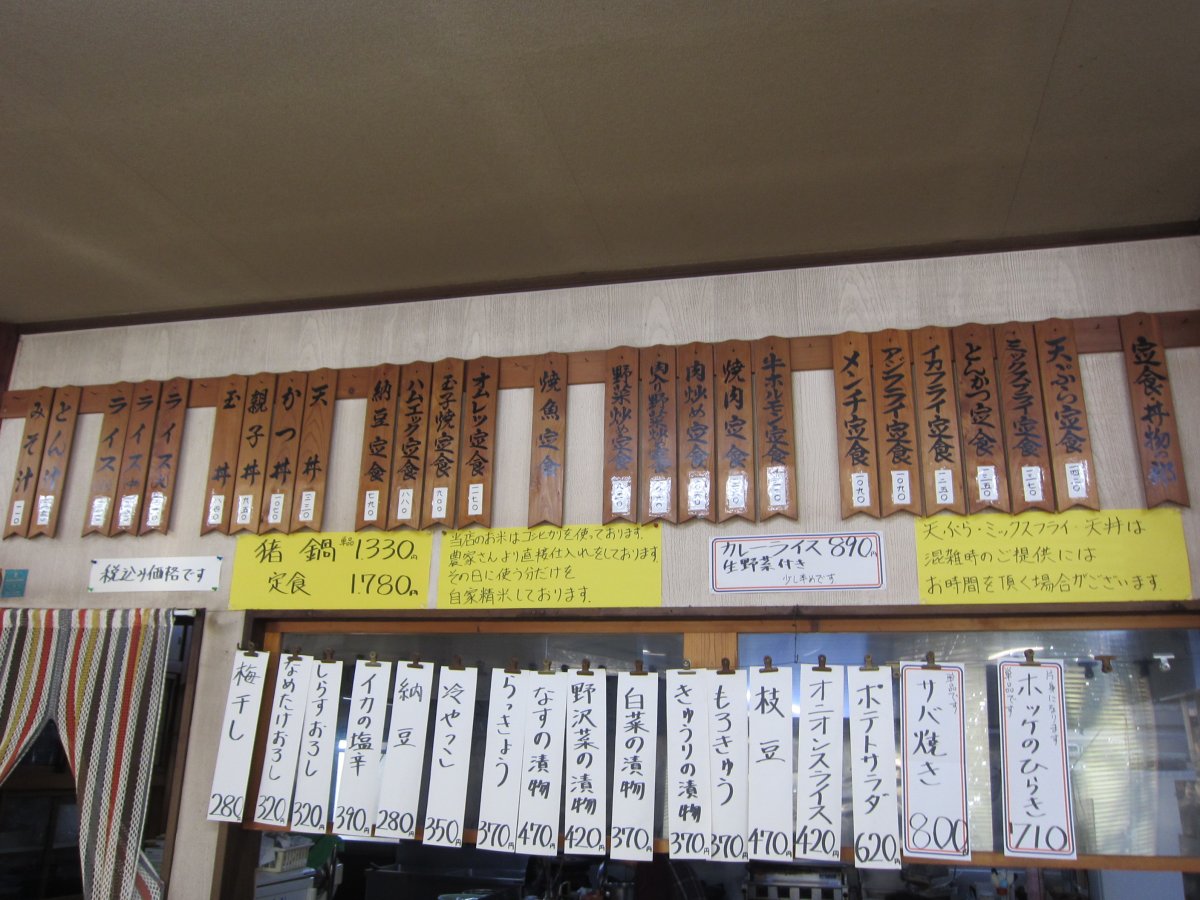 定食丼物の部
天ぷら定食
ミックスフライ定食
とんかつ定食
イカフライ定食
一二五〇
アジフライ定食
一〇九〇
メンチ定食
一〇九〇
牛ホルモン定食
焼肉定食
肉炒め定食
肉入り野菜炒め定食
野菜炒め定食
焼魚定食
オムレツ定食
一一七〇
玉子焼定食
九〇〇
ハムエッグ定食
八八〇
納豆定食
七九〇
天丼
かつ丼
親子丼
九五〇
玉丼
ライス
ライス
ライス
とん汁
みそ汁
一一〇
税込み価格です
猪鍋 1330円
定食 1780円
当店のお米はコシヒカリを使っております。
農家さんより直接仕入れをしております。
その日に使う分だけを
自家精米しております。
カレーライス 890円
生野菜付き
少し辛めです
天ぷら・ミックスフライ・天丼は
混雑時のご提供には
お時間を頂く場合がございます。
梅干し
280
なめたけおろし
320円
しらすおろし
320円
イカの塩辛
390円
納豆
280円
冷やっこ
350円
らっきょう
370円
なすの漬物
470円
野沢菜の漬物
420円
白菜の漬物
370円
きゅうりの漬物
370円
もろきゅう
370円
枝豆
470円
オニオンスライス
420円
ポテトサラダ
620円
サバ焼き
単品です。
800
ホッケのひらき
片身になります
単品です
710